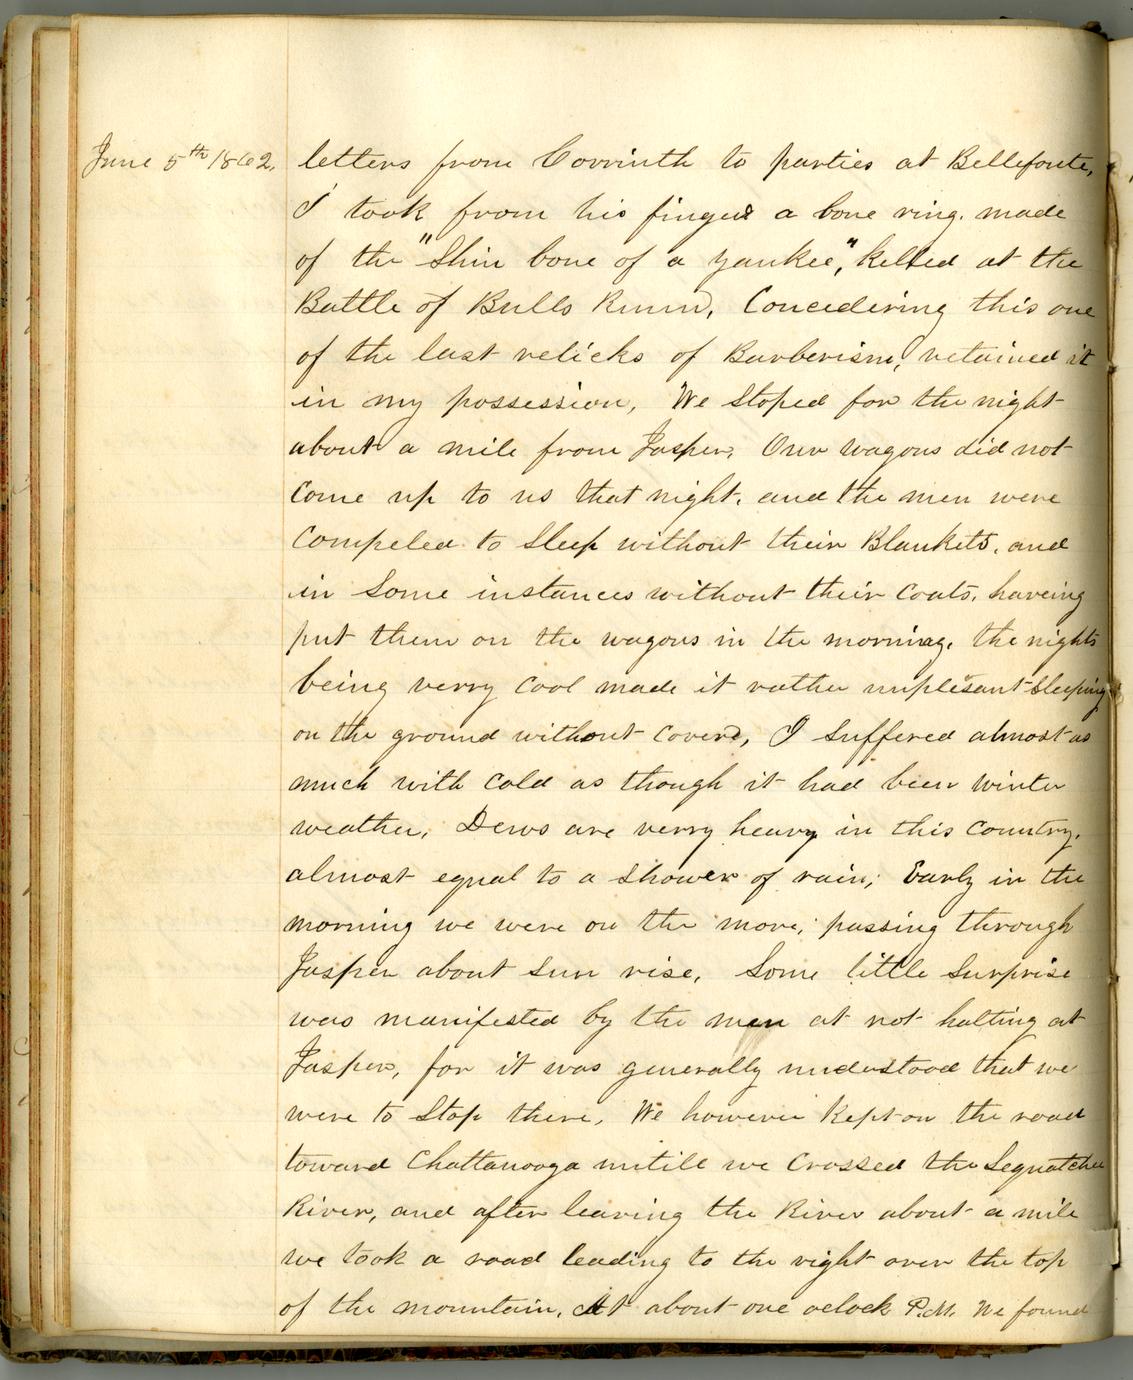 June 5th 1862. letters from Corrinth to parties at Bellefonte,
I took from his finger a bone ring. made
of the "Shin bone of a Yankee," killed at the
Battle of Bulls Runn, Concidering this one
of the last relicks of Barberism, retained it
in my possession, We Stoped for the night
about a mile from Jasper, Our wagons did not
Come up to us that night, and the men were
Compeled to Sleep without their Blankets, and
in Some instances without their Coats, haveing
put them on the wagons in the morning, the nights
being verry Cool made it rather unplesant Sleeping
on the ground without Cover, I Suffered almost as
much with Cold as though it had been Winter
weather, Dews are verry heavy in this Country,
almost equal to a Shower of rain; Early in the
morning we were on the move, passing through
Jasper about Sun rise, Some little Surprise
was manifested by the men at not halting at
Jasper, for it was generally understood that we
were to Stop there, We however Kept on the road
toward Chattanooga untill we Crossed the Sequatchee
River, and after leaving the River about a mile
we took a road leading to the right over the top
of the mountain, At about one oclock P.M. We found